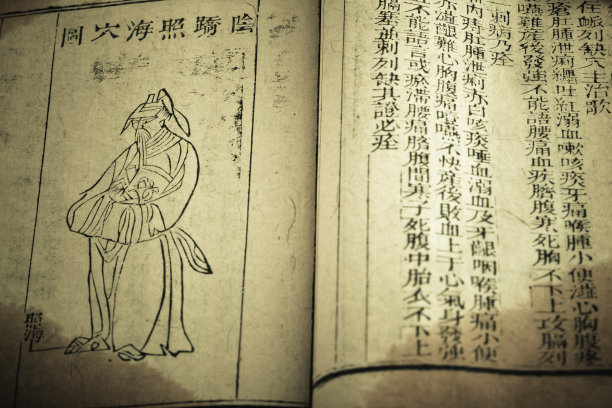 陰蹻照海穴圖
照海
列缺穴主治歌
肛腫泄痢纏吐紅溺血嗽咳痰牙痛喉腫小便澁心胸腹疼
噎嚥難產後發強不能語腰痛血疾臍腹寒死胎不下上攻膈列
刺病乃痊
內痔肛腫泄痢赤白咳痰唾血溺血及牙齦咽喉腫痛小便
赤澁難心胸腹痛噎嚥不快產後敗血上于心氣身發強
不能語言或瘀滯腰痛臍腹間寒子死腹中胎衣不下上
膈塞並刺列缺其證必痊